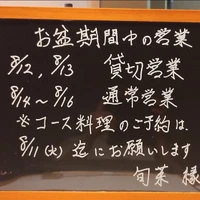 お盆期間中の営業
8/12, 8/13 貸切営業
8/14～8/16 通常営業
※コース料理のご予約は、
8/11(火)迄にお願いします
旬菜 縁